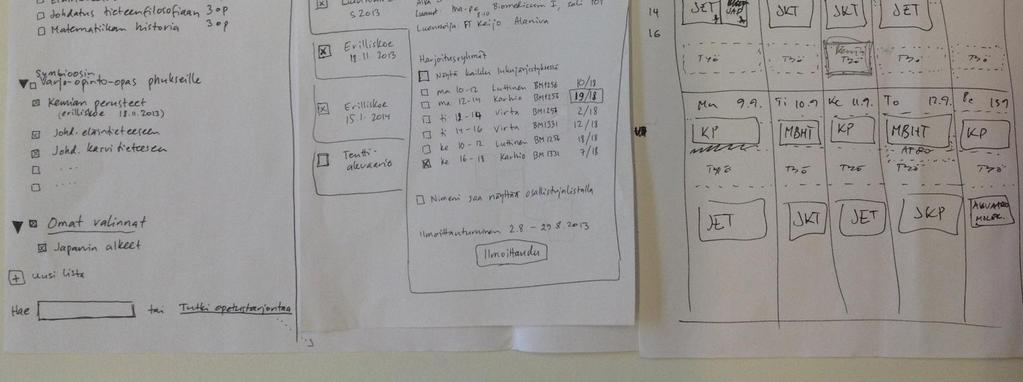 Johdatus tieteenfilosofiaan 3 op
Matematiikan historia 3 op
Symbioosin
varjo-opinto-opas phukseille
Kemian perusteet
(erilliskoe 18.11.2013)
Johd. eläintieteeseen
Johd. kasvitieteeseen
.....
.....
Omat valinnat
Japanin alkeet
+ Uusi lista
Hae
tai Tutki opetustarjontaa
5.2013
Erilliskoe
18.11.2013
Erilliskoe
15.1.2014
Tentti-
akvaario
Biomedicum I, sali 101
Luennoija: FT Keijo Alaniva
Harjoitusryhmät
Näytä kaikki lukujärjestyksessä
ma 10-12 Luttinen BM1256 10/18
ma 12-14 Karhio BM1256 19/18
ti 12-14 Virta BM1257 2/18
ti 14-16 Virta BM1331 12/18
ke 10-12 Luttinen BM1256 18/18
ke 16-18 Karhio BM1331 7/18
Nimeni saa näyttää osallistujalistalla
Ilmoittautuminen 2.8 - 29.8.2013
Ilmoittaudu
14
16
JET JKT JKT JET
Työ Työ Kemi Työ Työ Työ
Ma 9.9. Ti 10.9 Ke 11.9. To 12.9. Pe 13.9
KP MBHT KP MBHT KP
Työ Työ Työ Työ Työ
JET JKT JET JKP AKVAARIO